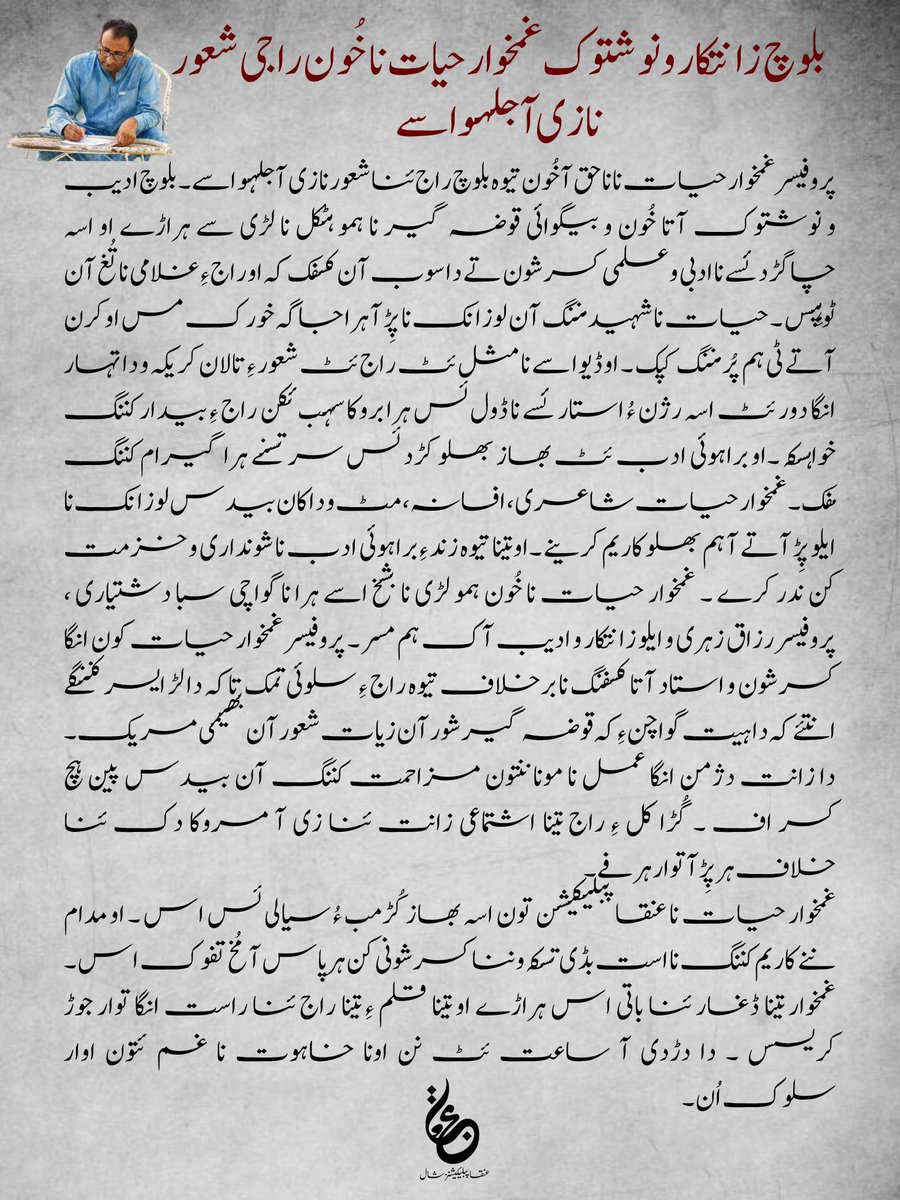 بلوچ زانتکار و نوشتوک غمخوار حیات نا خُون راجی شعور
نا زی آ جلہو اسے
پروفیسر غمخوار حیات نا ناحق آ خُون تیوہ بلوچ راج ئنا شعور نا زی آ جلہو اسے۔ بلوچ ادیب
و نوشتوک آتا خُون و بیگوائی قوضہ گیر نا ہمو ہٹکل نا لڑی سے ہراڑے او اسہ
چاگڑدئسے نا ادبی و علمی کسرشون تے داسوب آن کسفک کہ او راج ءِ غلامی نا تُغ آن
توپس۔ حیات نا شہید مننگ آن لوزانک نا پِڑ آ ہرا جاگہ خورک مس او کرن
آتے ٹی ہم پُر مننگ کپک۔ او ڈیوا سے نا مثل ئٹ راج ئٹ شعور ءِ تالان کریکہ و داتہار
انگا دور ئٹ اسہ رژن ءُ استارئسے نا ڈول ئس ہرا بروکا سہب ئکن راج ءِ بیدار کننگ
خواہسکہ۔ او براہوئی ادب ئٹ بھاز بھلو کڑدئس سر تسنے ہرا گیرام کننگ
مفک۔ غمخوار حیات شاعری، افسانہ، مٹ و داکان بیدس لوزانک نا
ایلو پِڑ آتے آ ہم بھلو کاریم کرینے۔ او تینا تیوہ زند ءِ براہوئی ادب نا شونداری و خزمت
کن ندر کرے۔ غمخوار حیات نا خُون ہمو لڑی نا بشخ اسے ہرانا گواچی سبا دشتیاری،
پروفیسر رزاق زہری و ایلو زانتکار و ادیب آک ہم مسر۔ پروفیسر غمخوار حیات کون انگا
کسرشون و استاد آتا کسفنگ نا برخلاف تیوہ راج ءِ سلوئی تمک تاکہ دا لڑ ایسر کننگے
انتئے کہ دا ہیت گواچن ءِ کہ قوضہ گیر شور آن زیات شعور آن بھیمی مریک۔
دا زانت دژمن انگا عمل نا مونا نتون مزاحمت کننگ آن بیدس پین ہچ
کسر اف۔ گُڑا کل ءِ راج تینا اشتماعی زانت ئنا زی آ مروکا دک ئنا
خلاف ہر پِڑ آ توار ہرفے۔
غمخوار حیات نا عنقا پبلیکیشن تون اسہ بھاز گُڑمب ءُ سیالی ئس اس۔ او مدام
ننے کاریم کننگ نا است بڈی تسکہ و ننا کسرشونی کن ہر پاس آ مُخ تفوک اس۔
غمخوار تینا ڈغار ئنا باتی اس ہراڑے او تینا قلم ءِ تینا راج ئنا راست انگا توار جوڑ
کریسس۔ دا دڑدی آ ساعت ئٹ نن اونا خاہوت نا غم ئتون اوار
سلوک اُن۔
عنقا پبلیکیشنز شال